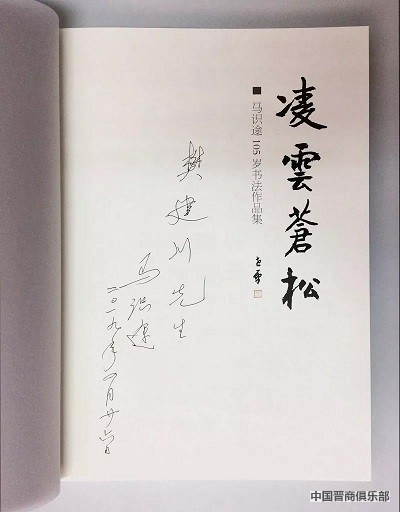 凌雲蒼松
■ 马识途 105 岁书法作品集
樊建川先生
马识途
二〇一九年一月廿六日
中国晋商俱乐部